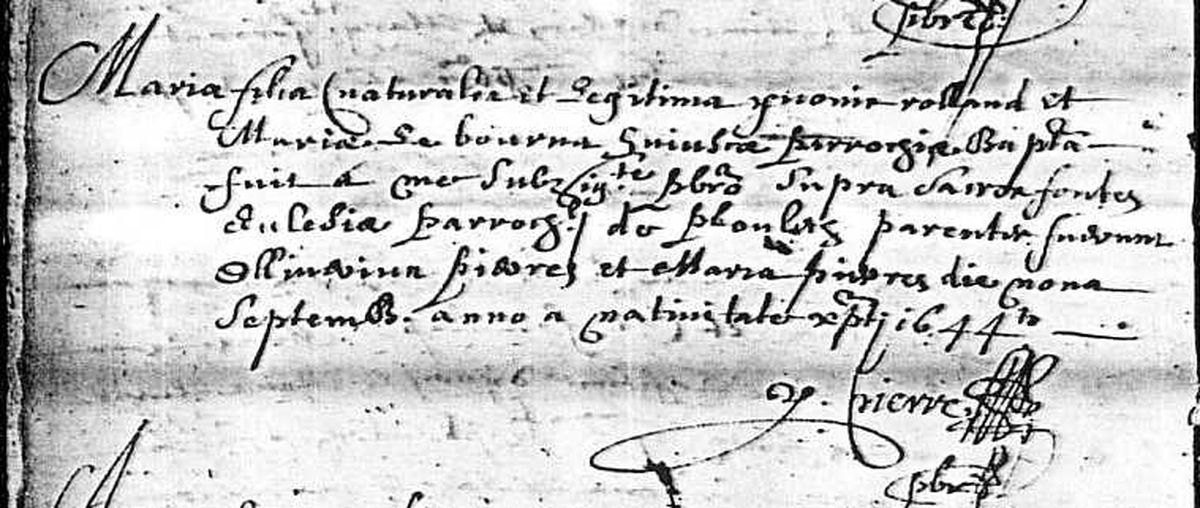 pbr
Maria filia naturalis et legitima yuonis rolland et
Maria Le bourva huiusce parrochiæ Bapta
fuit a me Subsigte pbro Supra Sacros fontes
Ecclesiæ parrochi de parentes fuerunt
pierres et Maria pierres die nona
Septemb. anno a nativitate xpti 1644to
y. pierre
pbr